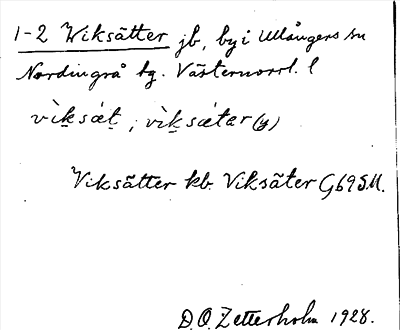 1-2 Viksätter jb, by i Ullångers sn
Nordingrå tg. Västernorrl. l
vìk̠sǽt̠ ; vìk̠sǽtar (y)
Viksätter kb. Viksäter Gb69 S.U.
D.O. Zetterholm 1928.